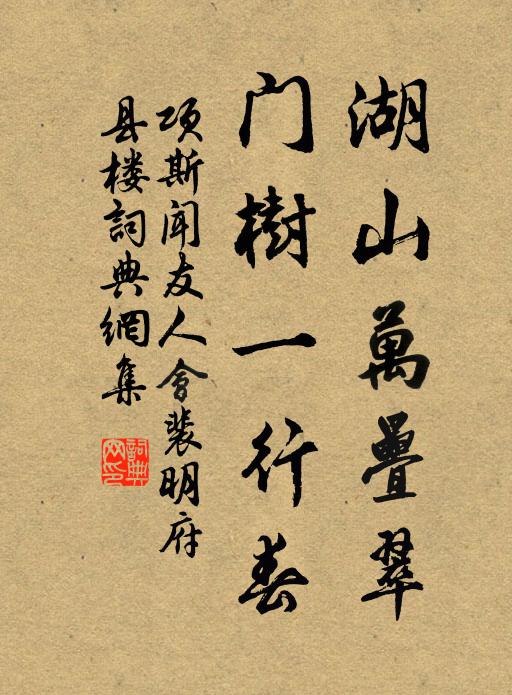 湖山萬疊翠
门樹一行春
项斯闻友人會裴明府
县楼詞典網集
詞典网印